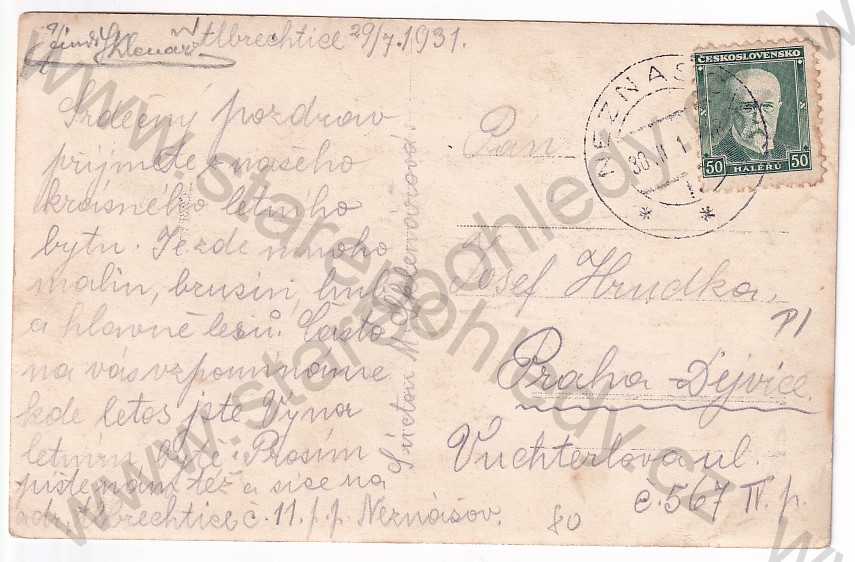 Albrechtice 29/7.1931.
Srdečný pozdrav
přijměte z našeho
krásného letního
bytu. Je zde mnoho
malin, brusin, hub
a hlavně lesů. Často
na vás vzpomínáme
kde letos jste Vy na
letním bytě. Prosím
pište nám též a sice na
adr. Albrechtice č. 11. p. p. Neznášov.
S úctou M.
Pán
Josef Hrudka,
Praha-Dejvice.
Vuchterlova ul.
č. 567 IV. p.
80
ČESKOSLOVENSKO
50 HALÉŘŮ 50
NEZNAŠ
30.VII.1
www.starepohledy.cz
www.starepohledy.cz